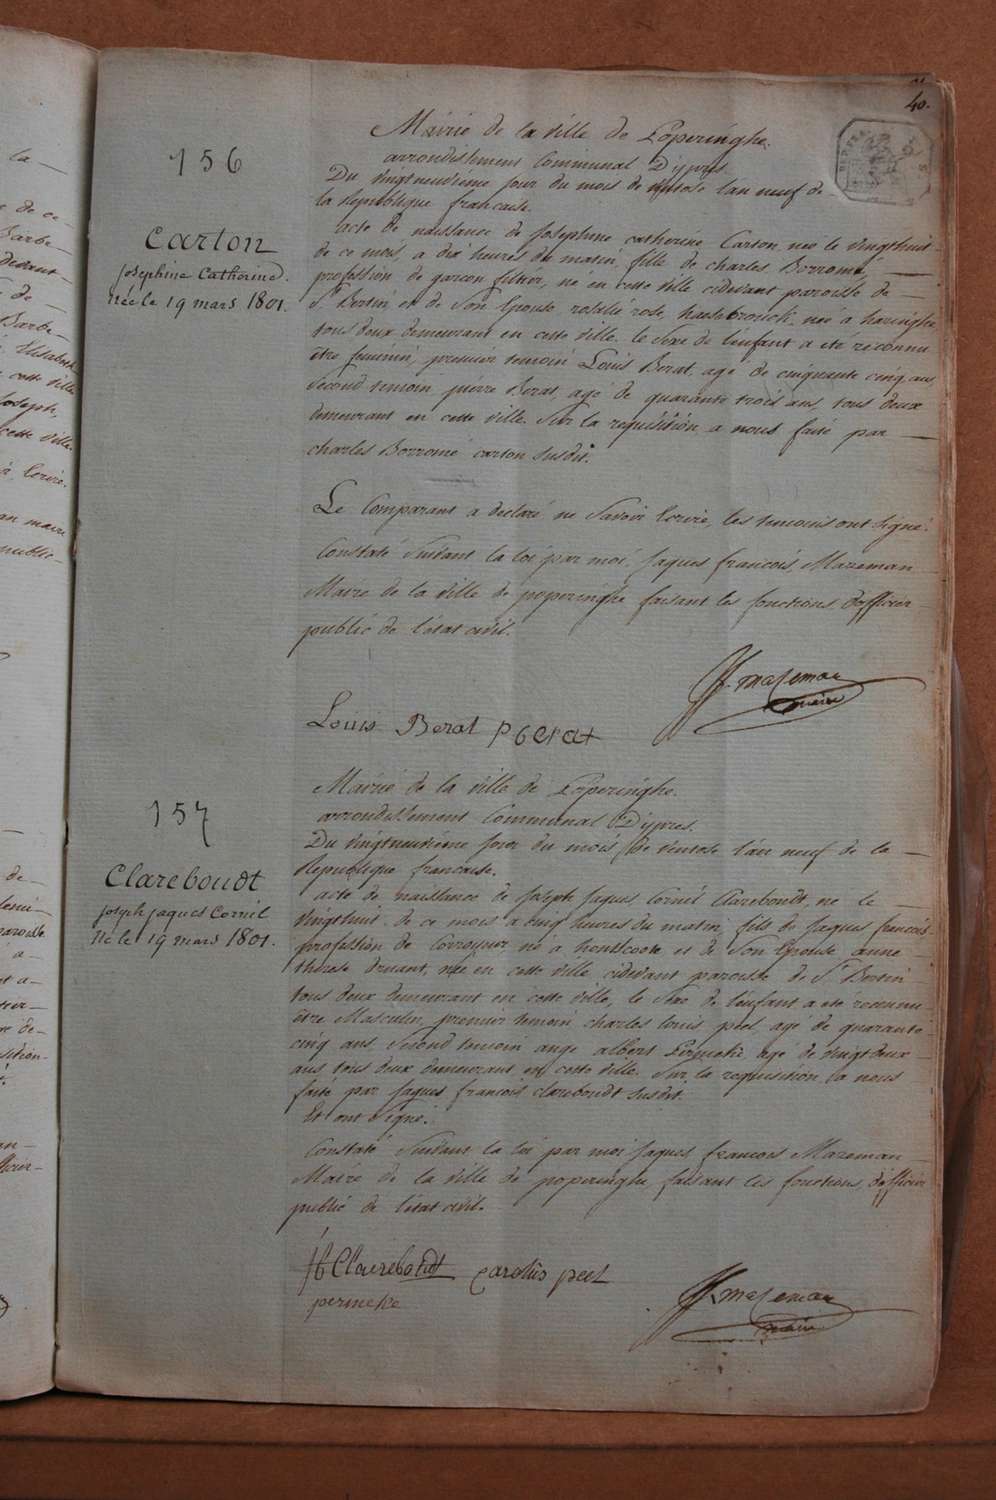 40.
Mairie de la ville de Poperinghe.
arrondissement Communal D'ypres.
Du vingtneuvième jour du mois de ventose l'an neuf de
la Republique francaise.
156
Carton
Josephine Catherine.
Née le 19 mars 1801.
acte de naissance de Josephine catherine Carton, neé le vingthuit
de ce mois, a dix heures du matin, fille de charles Borromé,
profession de garcon, né en cette ville cidevant paroisse de
St Bertin, et de Son Epouse rosalie rose, haesebrouck, neé a haringhe
tous deux demeurant en cette ville. le Sexe de l'enfant a eté reconnu
être feminin, premier temoin Louis Berat, agé de cinquante cinq ans,
Second temoin pierre Berat, agé de quarante trois ans, tous deux
demeurant en cette ville. Sur la requisition a nous faite par
charles Borromé carton susdit.
Le Comparant a declaré ne Savoir Ecrire, les temoins ont Signé.
Constaté Suivant la loi par moi Jaques francois Mazeman
Maire de la ville de poperinghe faisant les fonctions d'officier
public de l'état civil.
JF mazeman
maire
Louis Berat P Berat
Mairie de la ville de Poperinghe.
arrondissement Communal D'ypres.
157
Clareboudt
Joseph Jaques Cornil
Né le 19 mars 1801.
Du vingtneuvième jour du mois de ventose l'an neuf de la
Republique francaise.
acte de naissance de Joseph Jaques Cornil Clareboudt, né le
vingthuit de ce mois a cinq heures du matin, fils de Jaques francois
profession de Corroyeur, né a hontscoote et de Son Epouse anne
therese druant, neé en cette ville cidevant paroisse de St Bertin
tous deux demeurant en cette ville, le Sexe de l'enfant a eté reconnu
être Masculin, premier temoin charles louis peel, agé de quarante
cinq ans, Second temoin ange albert Permeke, agé de vingt deux
ans tous deux demeurant en cette ville. Sur la requisition a nous
faite par Jaques francois clareboudt susdit.
Et ont Signé.
Constaté Suivant la loi par moi Jaques francois Mazeman
Maire de la ville de poperinghe faisant les fonctions d'officier
public de l'état civil.
Jf Clareboudt carolus peel
permeke
JF mazeman
maire